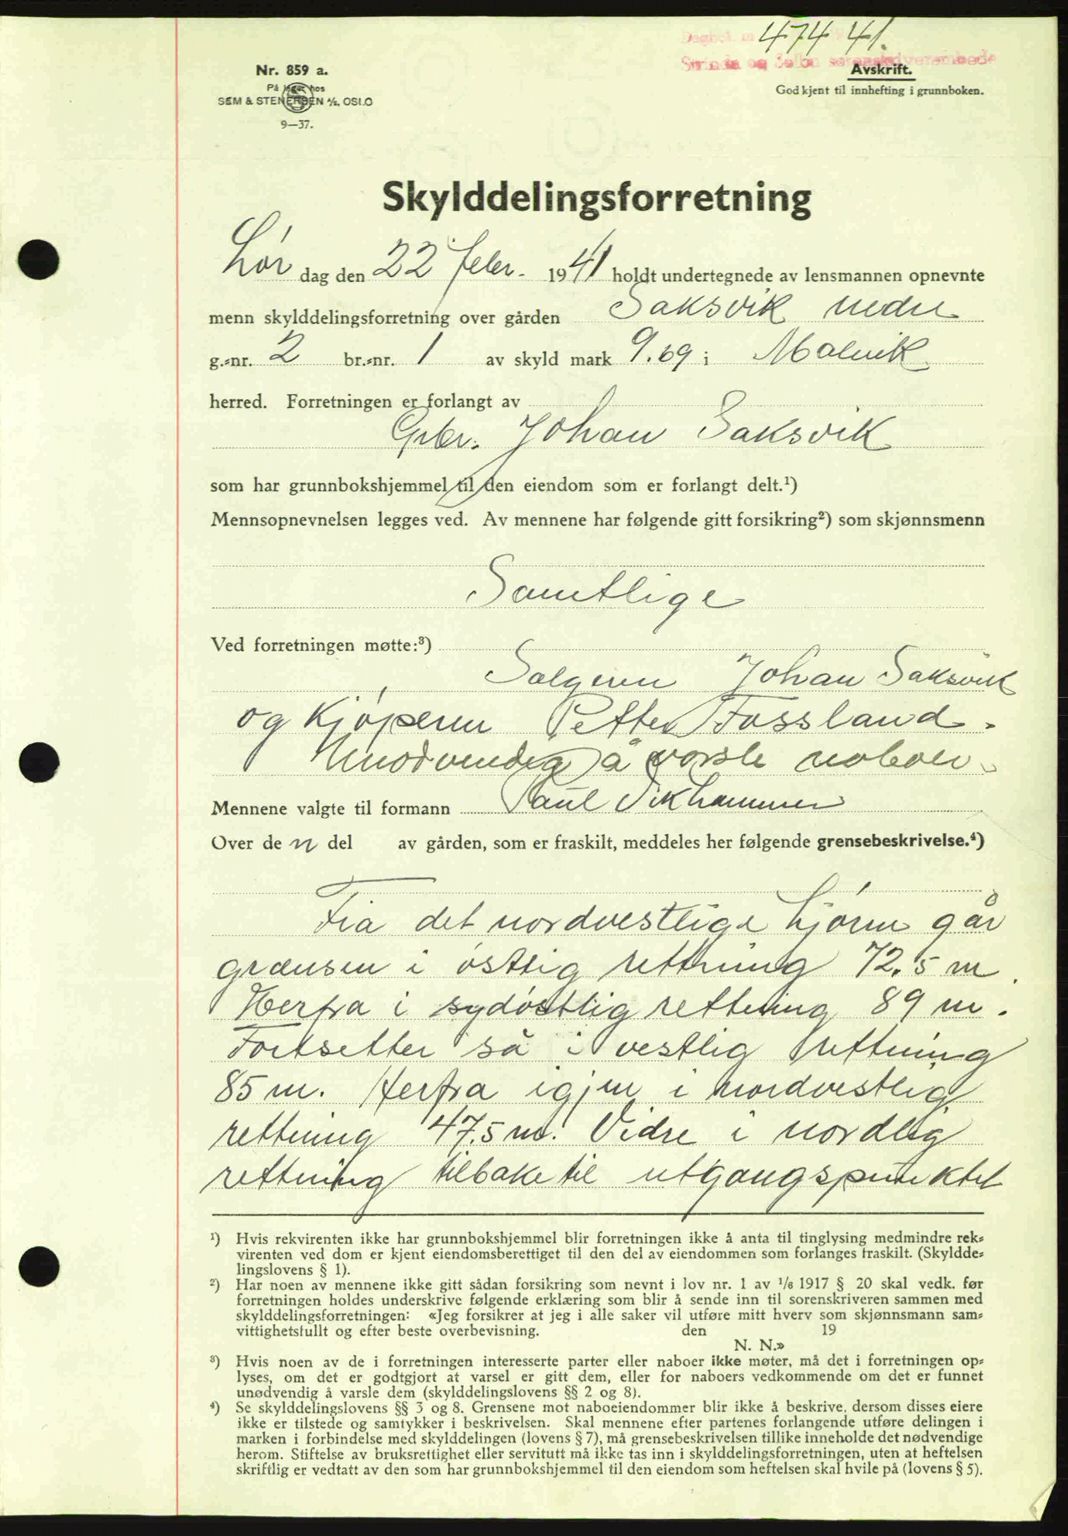 474 41.
Strinda og Selbu sorenskriverembede
Nr. 859 a.
På lager hos
SEM & STENERSEN A/S, OSLO
9—37.
Avskrift.
Godkjent til innhefting i grunnboken.
Skylddelingsforretning
Lør dag den 22 febr. 1941 holdt undertegnede av lensmannen opnevnte
menn skylddelingsforretning over gården Saksvik nedre
g.-nr. 2 br.-nr. 1 av skyld mark 9.69 i Malvik
herred. Forretningen er forlangt av
Grbr. Johan Saksvik
som har grunnbokshjemmel til den eiendom som er forlangt delt.¹)
Mennsopnevnelsen legges ved. Av mennene har følgende gitt forsikring²) som skjønnsmenn
Samtlige
Ved forretningen møtte:³)
Selgeren Johan Saksvik
og kjøperen Petter Fossland.
Unødvendig å varsle naboer.
Mennene valgte til formann Paul Vikhammer
Over den del av gården, som er fraskilt, meddeles her følgende grensebeskrivelse.⁴)
Fra det nordvestlige hjørne går
grænsen i østlig rettning 72.5 m.
Herfra i sydøstlig rettning 89 m.
Fortsetter så i vestlig rettning
85 m. Herfra igjen i nordvestlig
rettning 47.5 m. Vidre i nordlig
rettning tilbake til utgangspunktet
¹) Hvis rekvirenten ikke har grunnbokshjemmel blir forretningen ikke å anta til tinglysing medmindre rek-
virenten ved dom er kjent eiendomsberettiget til den del av eiendommen som forlanges fraskilt. (Skyldde-
lingslovens § 1).
²) Har noen av mennene ikke gitt sådan forsikring som nevnt i lov nr. 1 av 1/6 1917 § 20 skal vedk. før
forretningen holdes underskrive følgende erklæring som blir å sende inn til sorenskriveren sammen med
skylddelingsforretningen: «Jeg forsikrer at jeg i alle saker vil utføre mitt hverv som skjønnsmann sam-
vittighetsfullt og efter beste overbevisning. den 19
N. N.»
³) Hvis noen av de i forretningen interesserte parter eller naboer ikke møter, må det i forretningen op-
lyses, om det er godtgjort at varsel er gitt dem, eller for naboers vedkommende om det er funnet
unødvendig å varsle dem (skylddelingslovens §§ 2 og 8).
⁴) Se skylddelingslovens §§ 3 og 8. Grensene mot naboeiendommer blir ikke å beskrive, dersom disses eiere
ikke er tilstede og samtykker i beskrivelsen. Skal mennene efter partenes forlangende utføre delingen i
marken i forbindelse med skylddelingen (lovens § 7), må grensebeskrivelsen tillike inneholde det nødvendige
herom. Stiftelse av bruksrettighet eller servitutt må ikke tas inn i skylddelingsforretningen, uten at heftelsen
skriftlig er vedtatt av den som har grunnbokshjemmel til den eiendom som heftelsen skal hvile på (lovens § 5).